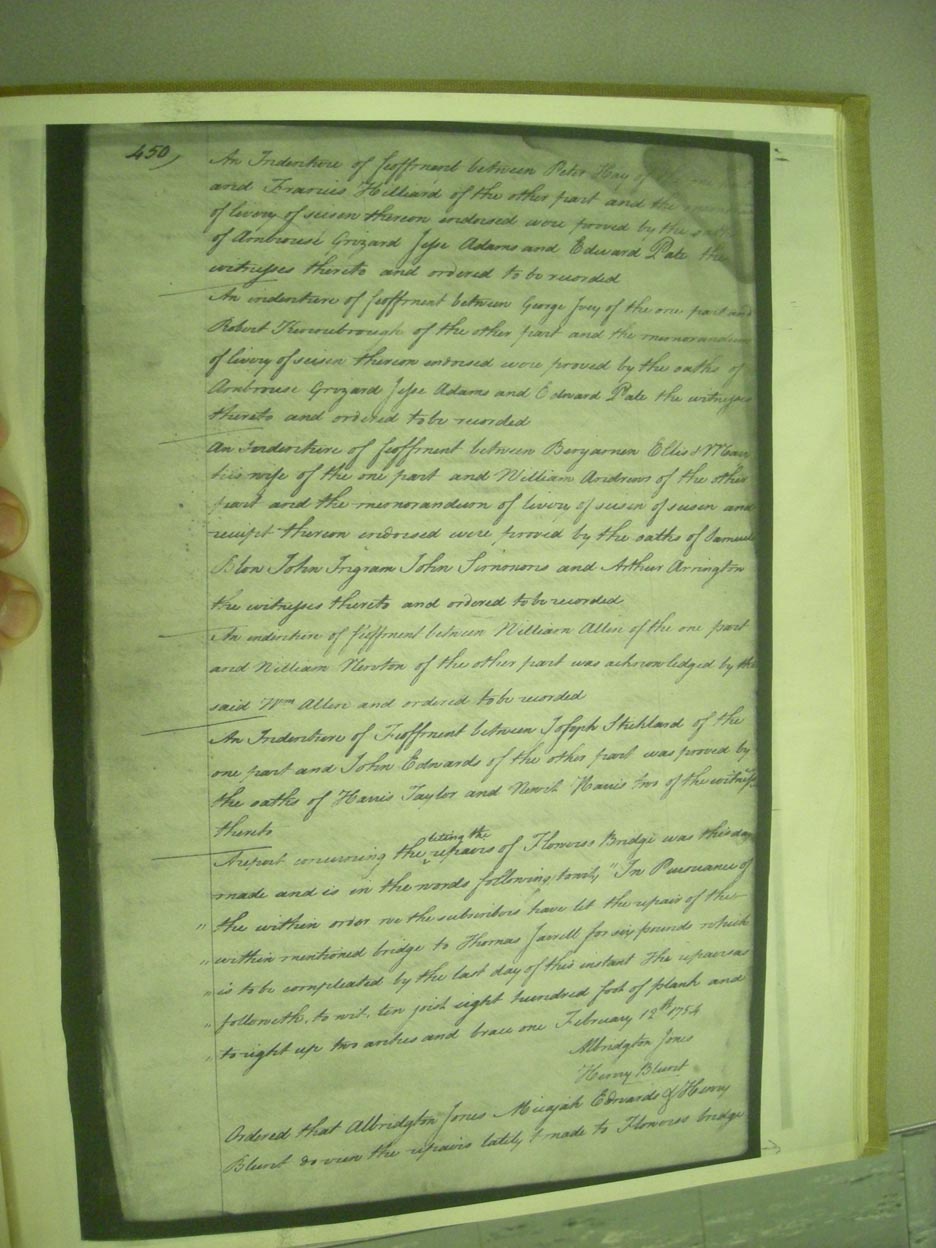 450,
An Indenture of feoffment between Peter Hay of the one
and Francis Hilliard of the other part and the memoran
of livery of seisen thereon endorsed were proved by the oaths
of Ambrouse Grizard Jesse Adams and Edward Pate the
witnesses thereto and ordered to be recorded
An indenture of feoffment between George Ivey of the one part and
Robert of the other part and the memorandum
of livery of seisen thereon endorsed were proved by the oaths of
Ambrouse Grizard Jesse Adams and Edward Pate the witnesses
thereto and ordered to be recorded
An Indenture of feoffment between Benjamen Ellis &
his wife of the one part and William Andrews of the other
part and the memorandum of livery of seisen of seisen and
receipt thereon endorsed were proved by the oaths of Samuel
John Ingram John Simmons and Arthur Arrington
the witnesses thereto and ordered to be recorded
An indenture of feffment between William Allen of the one part
and William Newton of the other part was acknowledged by the
said Wm Allen and ordered to be recorded
An Indenture of Feoffment between Joseph Strickland of the
one part and John Edwards of the other part was proved by
the oaths of Harris Taylor and Newit Harris two of the witness
thereto
A report concerning the leting the repairs of Flowers Bridge was this day
made and is in the words following towit, "In Pursuance of
" the within order we the subscribers have let the repair of the
" within mentioned bridge to Thomas Jarrell for six pounds which
" is to be compleated by the last day of this instant The repair as
" followeth, to wit, ten eight hundred foot of plank and
" to right up two arches and brace one February 12th 1754
Albridgton Jones
Henry Blunt
Ordered that Albridgton Jones Micajah Edwards & Henry
Blunt do view the repairs lately made to Flowers bridge